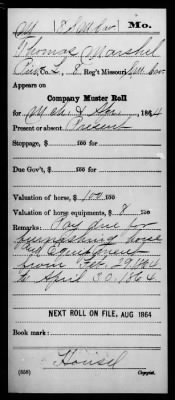 M | 8 S M Cav | Mo.
Thomas Marshel
Pri, Co. L, 8 Reg't Missouri S. M. Cav
Appears on
Company Muster Roll
for Mch & Apr, 1864
Present or absent Present
Stoppage, $ 100 for
Due Gov't, $ 100 for
Valuation of horse, $ 100 100
Valuation of horse equipments, $ 8 100
Remarks: Pay due for
furnishing horse
and equipment
from Feb 29 1864
to April 30 1864
NEXT ROLL ON FILE, AUG 1864
Book mark:
Housel
(358) Copyist.